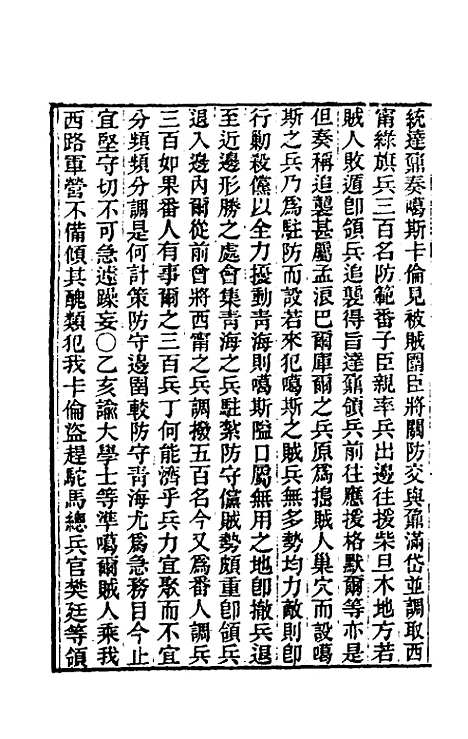 統達鼐奏噶斯卡倫見被賊圍臣將關防交與鼐滿岱並調取西
甯綠旗兵三百名防範番子臣親率兵出邊往援柴旦木地方若
賊人敗遁卽領兵追襲得旨達鼐領兵前往應援格默爾等亦是
但奏稱追襲甚屬孟浪巴爾庫爾之兵原爲搗賊人巢穴而設噶
斯之兵乃爲駐防而設若來犯噶斯之賊兵無多勢均力敵則卽
行勦殺儻以全力擾動靑海則噶斯隘口屬無用之地卽撤兵退
至近邊形勝之處會集靑海之兵駐紮防守儻賊勢頗重卽領兵
退入邊內爾從前曾將西甯之兵調撥五百名今又爲番人調兵
三百如果番人有事爾之三百兵丁何能濟乎兵力宜聚而不宜
分頻頻分調是何計策防守邊圉較防守靑海尤爲急務目今止
宜堅守切不可急遽躁妄〇乙亥諭大學士等準噶爾賊人乘我
西路軍營不備傾其醜類犯我卡倫盜趕駝馬總兵官樊廷等領